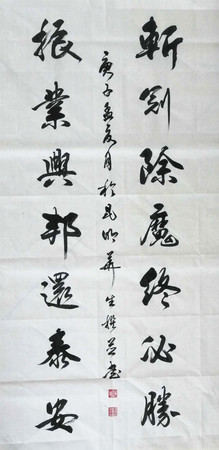 斬除魔終必勝
庚子孟夏月於昆明生撰書
振業興邦還泰安